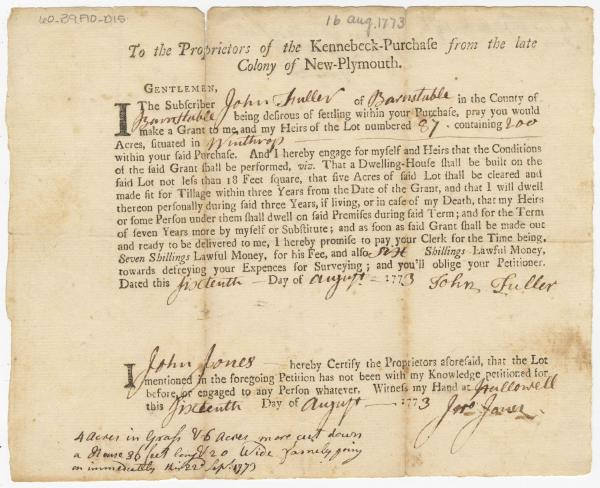 60.39.F10-D15
16 aug. 1773
To the Proprietors of the Kennebeck-Purchaſe from the late
Colony of New-Plymouth.
GENTLEMEN,
I The Subſcriber John Fuller of Barnstable in the County of
Barnstable being deſirous of ſettling within your Purchaſe, pray you would
make a Grant to me, and my Heirs of the Lot numbered 87. containing 200
Acres, ſituated in Winthrop
within your ſaid Purchaſe. And I hereby engage for myſelf and Heirs that the Conditions
of the ſaid Grant ſhall be performed, viz. That a Dwelling-Houſe ſhall be built on the
ſaid Lot not leſs than 18 Feet ſquare, that five Acres of ſaid Lot ſhall be cleared and
made fit for Tillage within three Years from the Date of the Grant, and that I will dwell
thereon perſonally during ſaid three Years, if living, or in caſe of my Death, that my Heirs
or ſome Perſon under them ſhall dwell on ſaid Premiſes during ſaid Term; and for the Term
of ſeven Years more by myſelf or Subſtitute; and as ſoon as ſaid Grant ſhall be made out
and ready to be delivered to me, I hereby promiſe to pay your Clerk for the Time being,
Seven Shillings Lawful Money, for his Fee, and alſo Six Shillings Lawful Money,
towards defreying your Expences for Surveying; and you'll oblige your Petitioner.
Dated this Sixteenth Day of August 1773 John Fuller
I John Jones hereby Certify the Proprietors aforeſaid, that the Lot
mentioned in the foregoing Petition has not been with my Knowledge petitioned for
before, or engaged to any Perſon whatever. Witneſs my Hand at Hallowell
this Sixteenth Day of August 1773 Jno Jones
4 acres in Graſs & 6 acres more cut down
a House 36 feet long & 20 Wide family going
on immediately this 22d Sepr. 1773